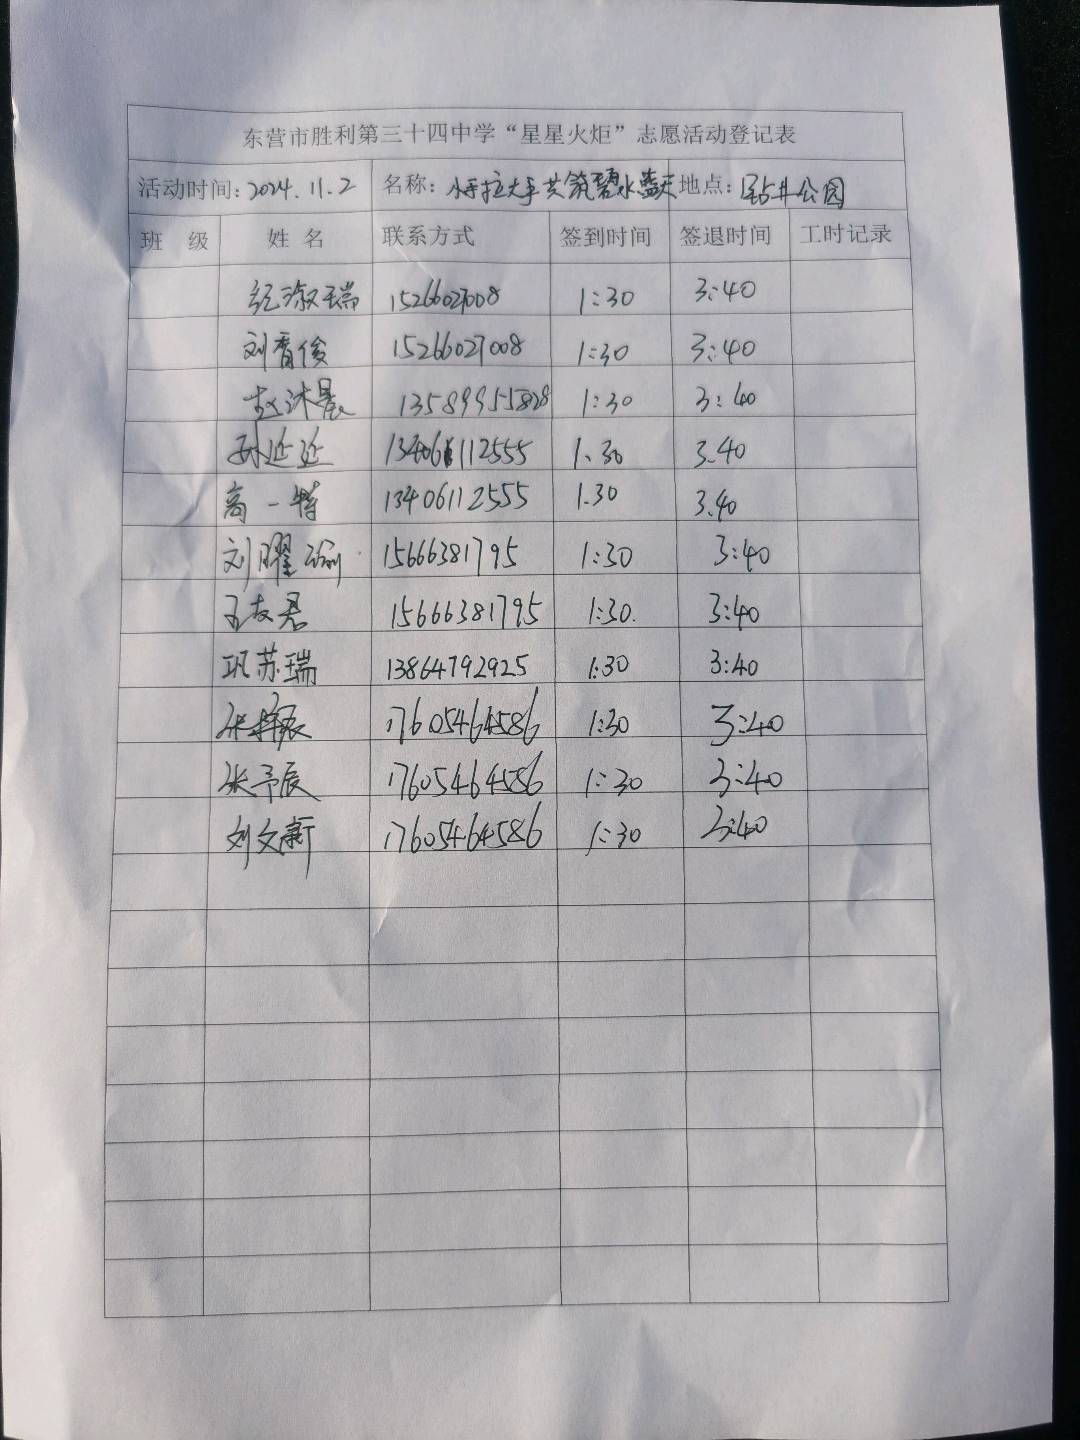 东营市胜利第三十四中学“星星火炬”志愿活动登记表
活动时间：2024.11.2 名称：小手拉大手共筑碧水蓝天 地点：钻井公园
班 级 姓 名 联系方式 签到时间 签退时间 工时记录
纪淑瑞 15266027008 1:30 3:40
刘胥俊 15266027008 1:30 3:40
赵沐晨 13589955828 1:30 3:40
孙延延 13406112555 1.30 3.40
高一特 13406112555 1.30 3.40
刘曜瑜 15666381795 1:30 3:40
王友君 15666381795 1:30. 3:40
巩苏瑞 13864792925 1:30 3:40
张 17605464586 1:30 3:40
张予辰 17605464586 1:30 3:40
刘文新 17605464586 1:30 3:40